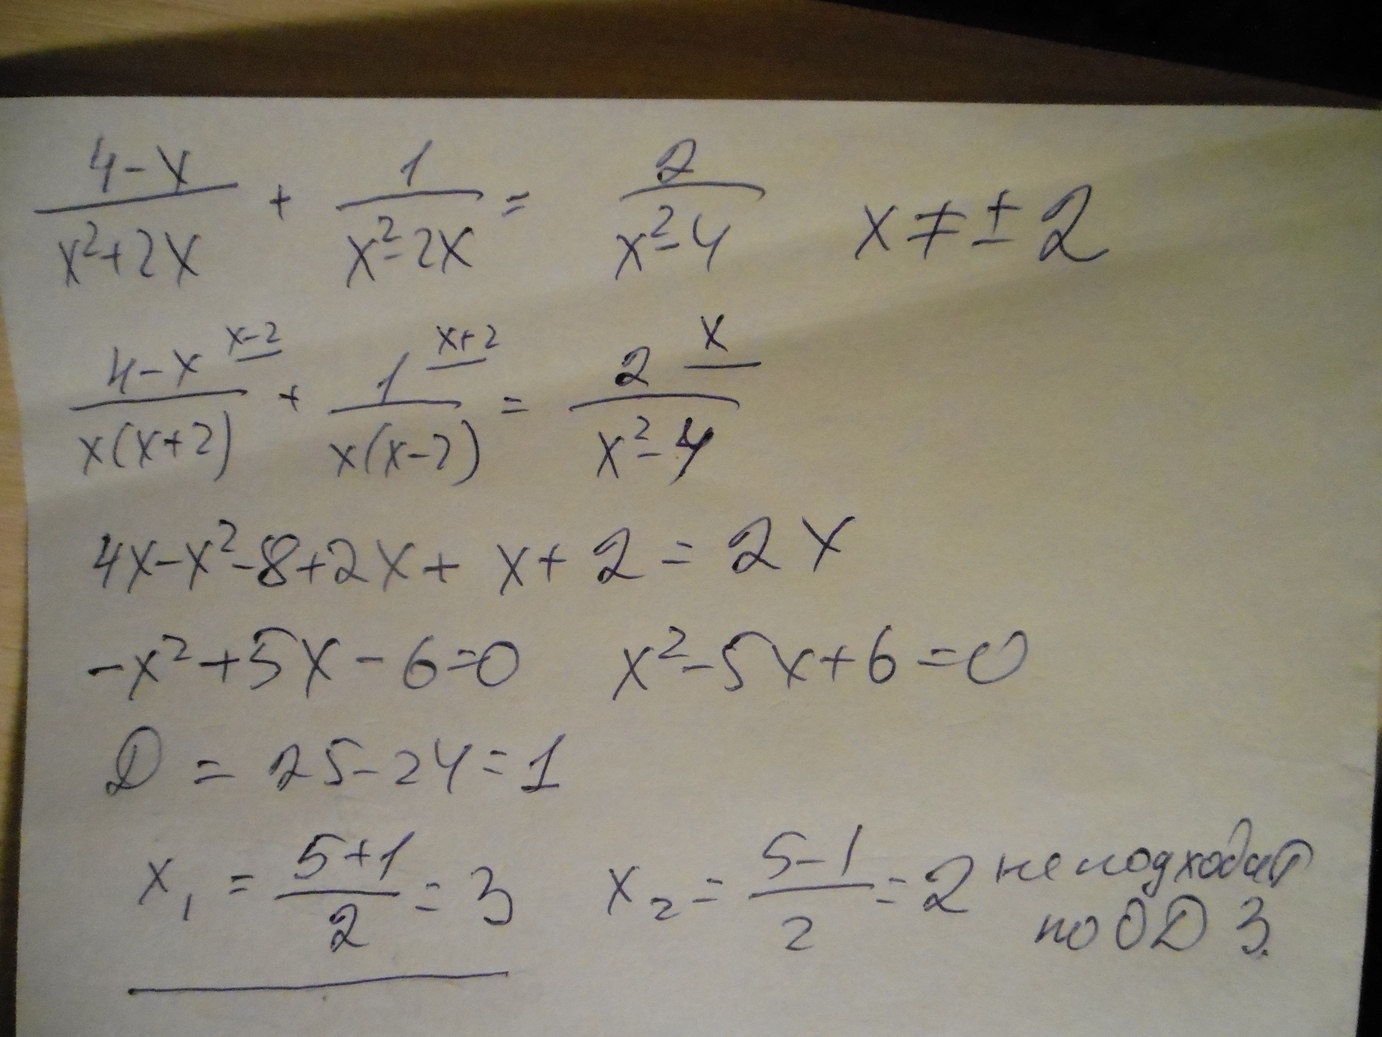 (4-x)/(x²+2x) + 1/(x²-2x) = 2/(x²-4) x ≠ ± 2
(4-x)/(x(x+2)) x-2 + 1/(x(x-2)) x+2 = 2/(x²-4) x
4x-x²-8+2x+x+2=2x
-x²+5x-6=0 x²-5x+6=0
D = 25-24=1
x₁ = (5+1)/2 = 3 x₂ = (5-1)/2 = 2 не подходит
по ОДЗ.